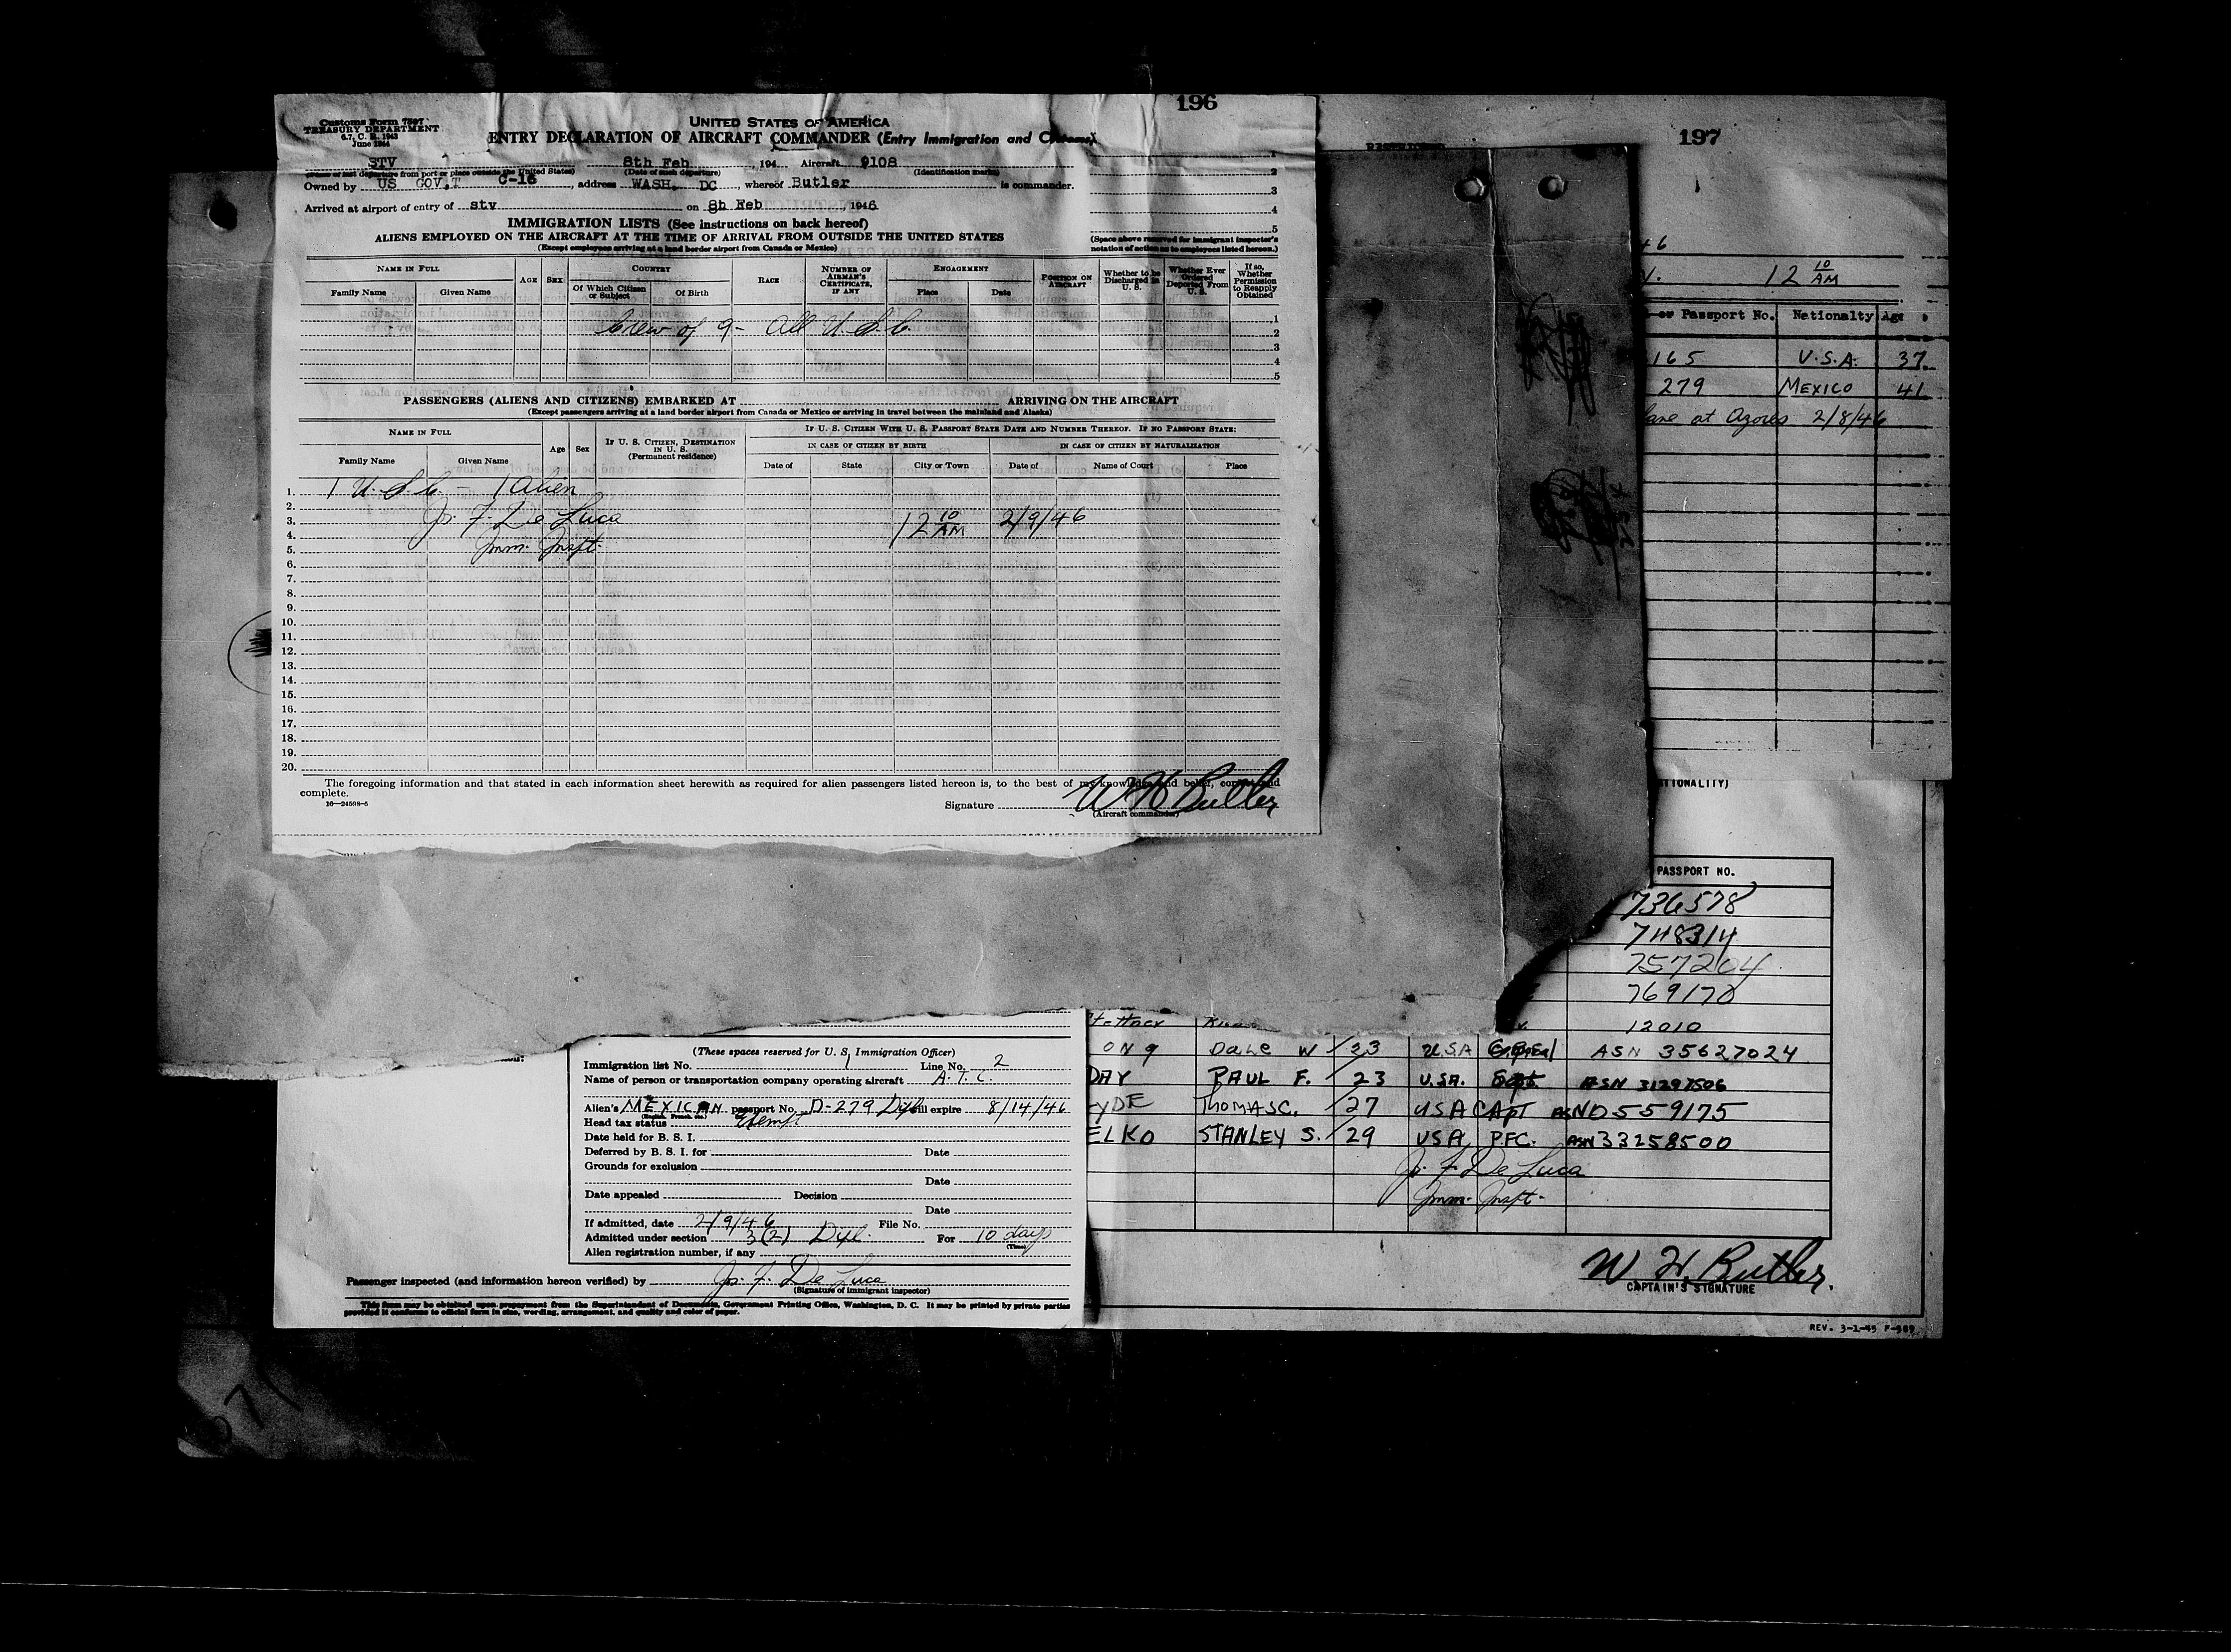 196
Customs Form 7507
TREASURY DEPARTMENT
6.7, C. R. 1943
June 1944
UNITED STATES OF AMERICA
ENTRY DECLARATION OF AIRCRAFT COMMANDER (Entry Immigration and Customs)
STV 8th Feb , 194 Aircraft 9108
(Name of last departure from port or place outside the United States) (Date of such departure) (Identification marks)
Owned by US GOV,T C-16 , address WASH. DC , whereof Butler is commander.
Arrived at airport of entry of stv on 8h Feb , 1946
1
2
3
4
5
(Space above reserved for immigrant inspector's notation of action as to employees listed hereon.)
IMMIGRATION LISTS (See instructions on back hereof)
ALIENS EMPLOYED ON THE AIRCRAFT AT THE TIME OF ARRIVAL FROM OUTSIDE THE UNITED STATES
(Except employees arriving at a land border airport from Canada or Mexico)
NAME IN FULL AGE SEX COUNTRY RACE NUMBER OF AIRMAN'S CERTIFICATE, IF ANY ENGAGEMENT POSITION ON AIRCRAFT Whether to be Discharged in U. S. Whether Ever Ordered Deported From U. S. If so, Whether Permission to Reapply Obtained
Family Name Given Name Of Which Citizen or Subject Of Birth Place Date
1
Crew of 9 - All U.S.C.
2
3
4
5
PASSENGERS (ALIENS AND CITIZENS) EMBARKED AT ARRIVING ON THE AIRCRAFT
(Except passengers arriving at a land border airport from Canada or Mexico or arriving in travel between the mainland and Alaska)
NAME IN FULL Age Sex IF U. S. CITIZEN, DESTINATION IN U. S. (Permanent residence) IF U. S. CITIZEN WITH U. S. PASSPORT STATE DATE AND NUMBER THEREOF. IF NO PASSPORT STATE:
IN CASE OF CITIZEN BY BIRTH IN CASE OF CITIZEN BY NATURALIZATION
Family Name Given Name Date of State City or Town Date of Name of Court Place
1. 1 U.S.C. - 1 Alien
2.
3. Js. F. De Luca 12 10 AM 2/9/46
4.
5. Imm. Inspt.
6.
7.
8.
9.
10.
11.
12.
13.
14.
15.
16.
17.
18.
19.
20.
The foregoing information and that stated in each information sheet herewith as required for alien passengers listed hereon is, to the best of my knowledge and belief, correct and
complete.
16—24598-5
Signature W H Butler
(Aircraft commander)
197
46
12 10 AM
or Passport No. Nationalty Age
165 U.S.A. 37.
279 MEXICO 41
at Azores 2/8/46
TIONALITY)
PASSPORT NO.
736578
748314
757204
769170
12010
ONG DALE W 23 U.S.A ASN 35627024
DAY PAUL F. 23 U.S.A. ASN 31297506
YDE THOMAS C. 27 USA CAPT ASN 0559175
ELKO STANLEY S. 29 USA PFC. ASN 33258500
Js. F. De Luca
Imm. Inspt.
W H. Butler
CAPTAIN'S SIGNATURE
REV. 3-1-45 F-969
(These spaces reserved for U. S. Immigration Officer)
Immigration list No. 1 Line No. 2
Name of person or transportation company operating aircraft A.T.C.
Alien's MEXICAN passport No. D-279 Dipl will expire 8/14/46
(English, French, etc.)
Head tax status Exempt
Date held for B. S. I.
Deferred by B. S. I. for Date
Grounds for exclusion
Date
Date appealed Decision
Date
If admitted, date 2/9/46 File No.
Admitted under section 3(2) Dipl. For 10 days
(Time)
Alien registration number, if any
Passenger inspected (and information hereon verified) by Js. F. De Luca
(Signature of immigrant inspector)
This form may be obtained upon prepayment from the Superintendent of Documents, Government Printing Office, Washington, D. C. It may be printed by private parties
provided it conforms to official form in size, wording, arrangement, and quality and color of paper.